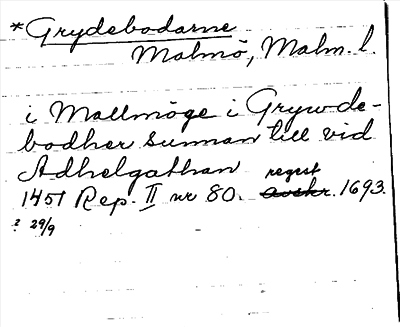 *Grydebodarne
Malmö, Malm. l.
i Mallmöge i Grywde-
bodher sunnan till vid
Adhelgathan
regest
1451 Rep. II nr 80. avskr. 1693.
? 29/9